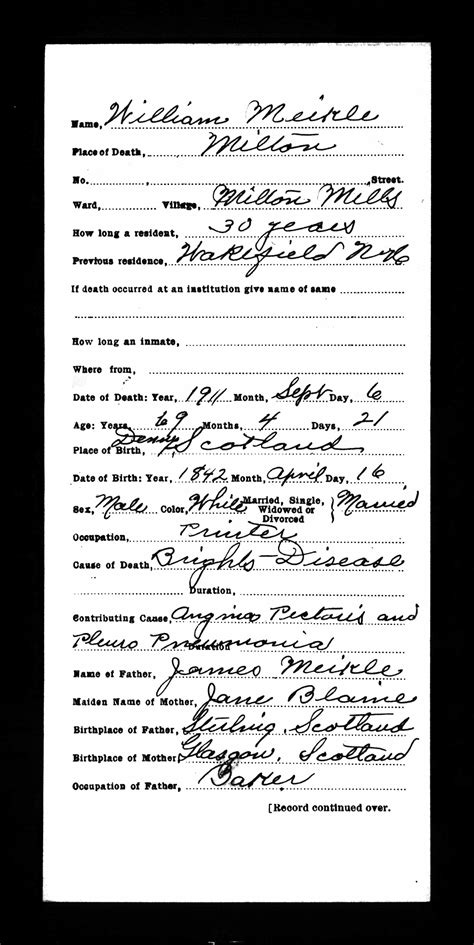 Name, William Meikle
Place of Death, Milton
No. , Street.
Ward, Village, Milton Mills
How long a resident, 30 years
Previous residence, Wakefield N.H.
If death occurred at an institution give name of same
How long an inmate,
Where from,
Date of Death: Year, 1911 Month, Sept Day, 6
Age: Years, 69 Months, 4 Days, 21
Place of Birth, Denny Scotland
Date of Birth: Year, 1842 Month, April Day, 16
Sex, Male Color, White Married, Single, Widowed or Divorced } Married
Occupation, Printer
Cause of Death, Brights Disease
Duration,
Contributing Cause, Angina Pectoris and
Pleuro Pneumonia
Duration
Name of Father, James Meikle
Maiden Name of Mother, Jane Blaine
Birthplace of Father, Stirling, Scotland
Birthplace of Mother, Glasgow, Scotland
Occupation of Father, Baker
[Record continued over.